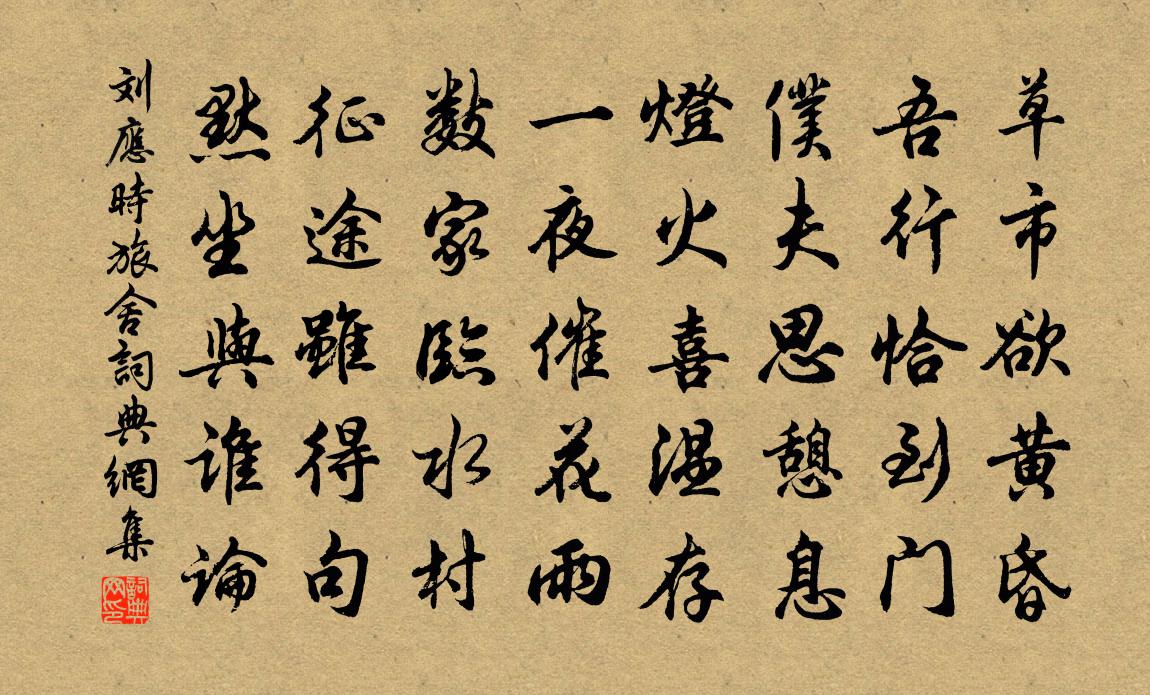 草市欲黄昏
吾行恰到门
僕夫思憩息
燈火喜温存
一夜催花雨
数家臨水村
征途雖得句
默坐與谁論
刘應時旅舍詞典網集
詞典网印